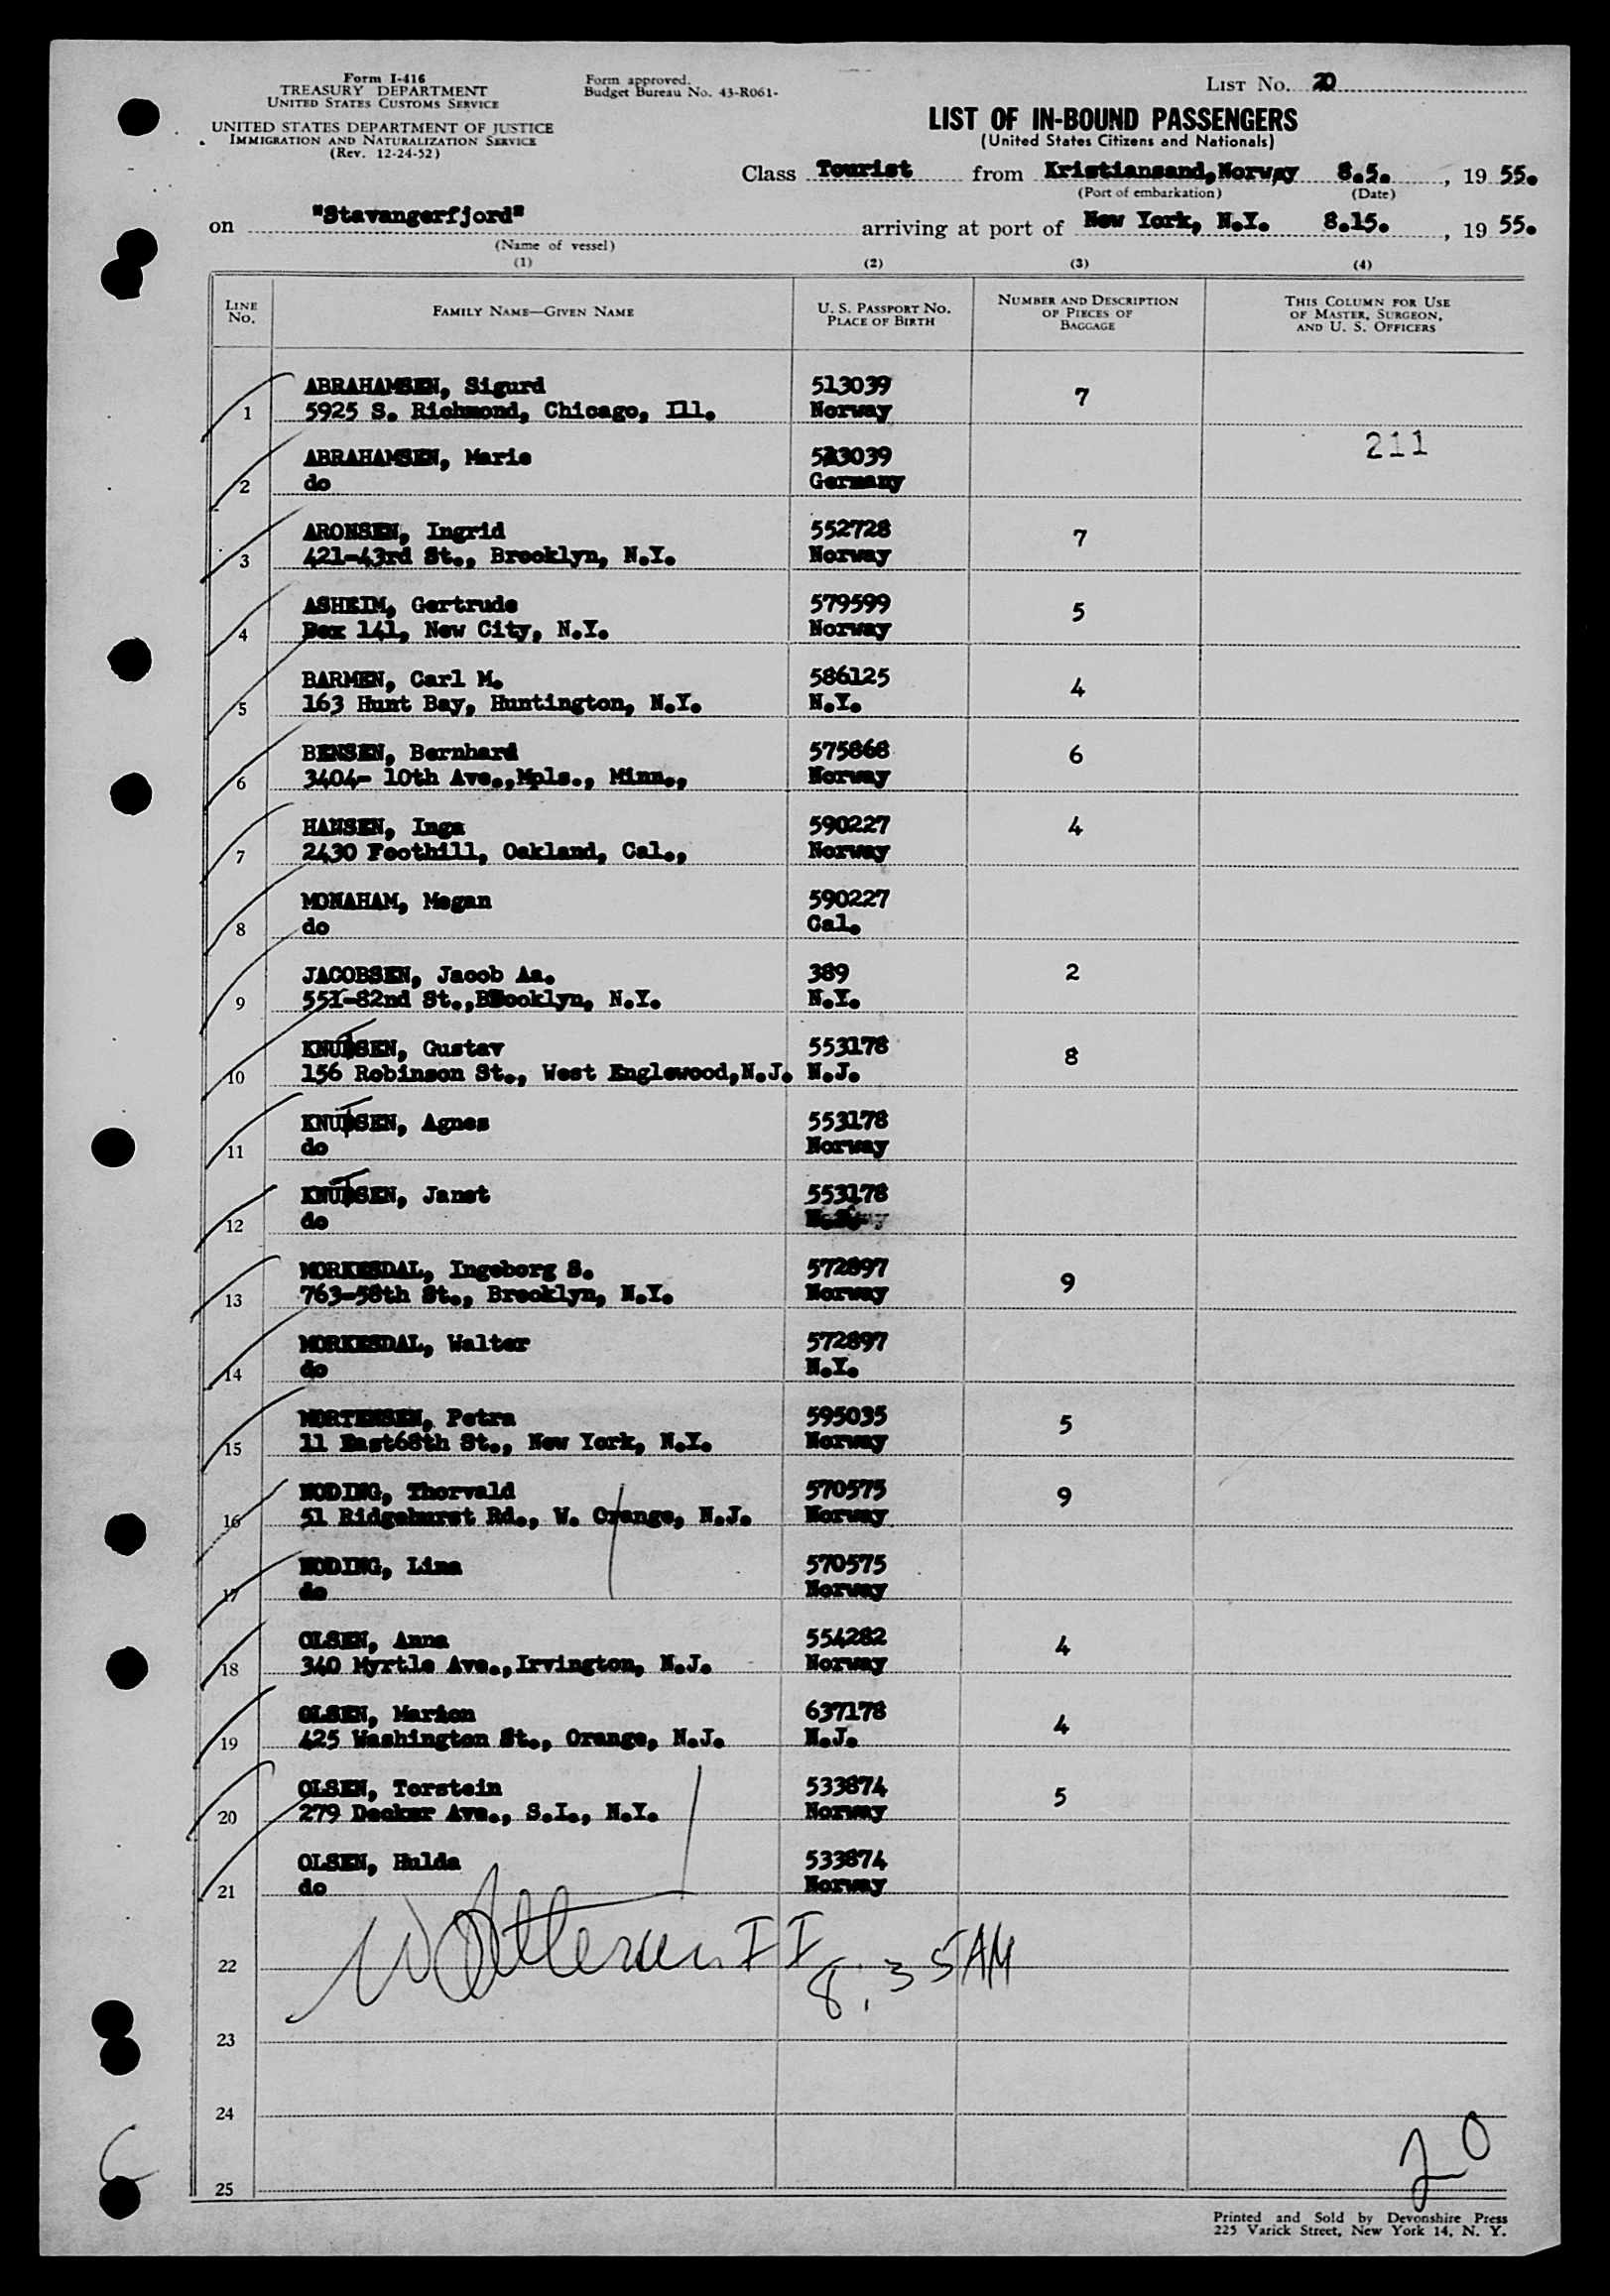 Form I-416
TREASURY DEPARTMENT
UNITED STATES CUSTOMS SERVICE
UNITED STATES DEPARTMENT OF JUSTICE
IMMIGRATION AND NATURALIZATION SERVICE
(Rev. 12-24-52)
Form approved.
Budget Bureau No. 43-R061-
LIST No. 20
LIST OF IN-BOUND PASSENGERS
(United States Citizens and Nationals)
Class Tourist from Kristiansand, Norway 8.5., 19 55.
(Port of embarkation) (Date)
on "Stavangerfjord" arriving at port of New York, N.Y. 8.15., 19 55.
(Name of vessel)
(1) (2) (3) (4)
LINE No. FAMILY NAME—GIVEN NAME U. S. PASSPORT No. PLACE OF BIRTH NUMBER AND DESCRIPTION OF PIECES OF BAGGAGE THIS COLUMN FOR USE OF MASTER, SURGEON, AND U. S. OFFICERS
ABRAHAMSEN, Sigurd 513039 7
1 5925 S. Richmond, Chicago, Ill. Norway
211
ABRAHAMSEN, Marie 513039
2 do Germany
ARONSEN, Ingrid 552728 7
3 421-43rd St., Brooklyn, N.Y. Norway
ASHEIM, Gertrude 579599 5
4 Box 141, New City, N.Y. Norway
BARMEN, Carl M. 586125 4
5 163 Hunt Bay, Huntington, N.Y. N.Y.
BENSEN, Bernhard 575868 6
6 3404- 10th Ave.,Mpls., Minn., Norway
HANSEN, Inga 590227 4
7 2430 Foothill, Oakland, Cal., Norway
MONAHAM, Megan 590227
8 do Cal.
JACOBSEN, Jacob Aa. 389 2
9 551-82nd St.,Brooklyn, N.Y. N.Y.
KNUTSEN, Gustav 553178 8
10 156 Robinson St., West Englewood,N.J. N.J.
KNUTSEN, Agnes 553178
11 do Norway
KNUTSEN, Janet 553178
12 do
MORKESDAL, Ingeborg S. 572897 9
13 763-58th St., Brooklyn, N.Y. Norway
MORKESDAL, Walter 572897
14 do N.Y.
MORTENSEN, Petra 595035 5
15 11 East68th St., New York, N.Y. Norway
NODING, Thorvald 570575 9
16 51 Ridgehurst Rd., W. Orange, N.J. Norway
NODING, Lina 570575
17 do Norway
OLSEN, Anna 554282 4
18 340 Myrtle Ave.,Irvington, N.J. Norway
OLSEN, Marion 637178 4
19 425 Washington St., Orange, N.J. N.J.
OLSEN, Torstein 533874 5
20 279 Decker Ave., S.I., N.Y. Norway
OLSEN, Hulda 533874
21 do Norway
22 II 8:35AM
23
24
20
25
Printed and Sold by Devonshire Press
225 Varick Street, New York 14, N. Y.